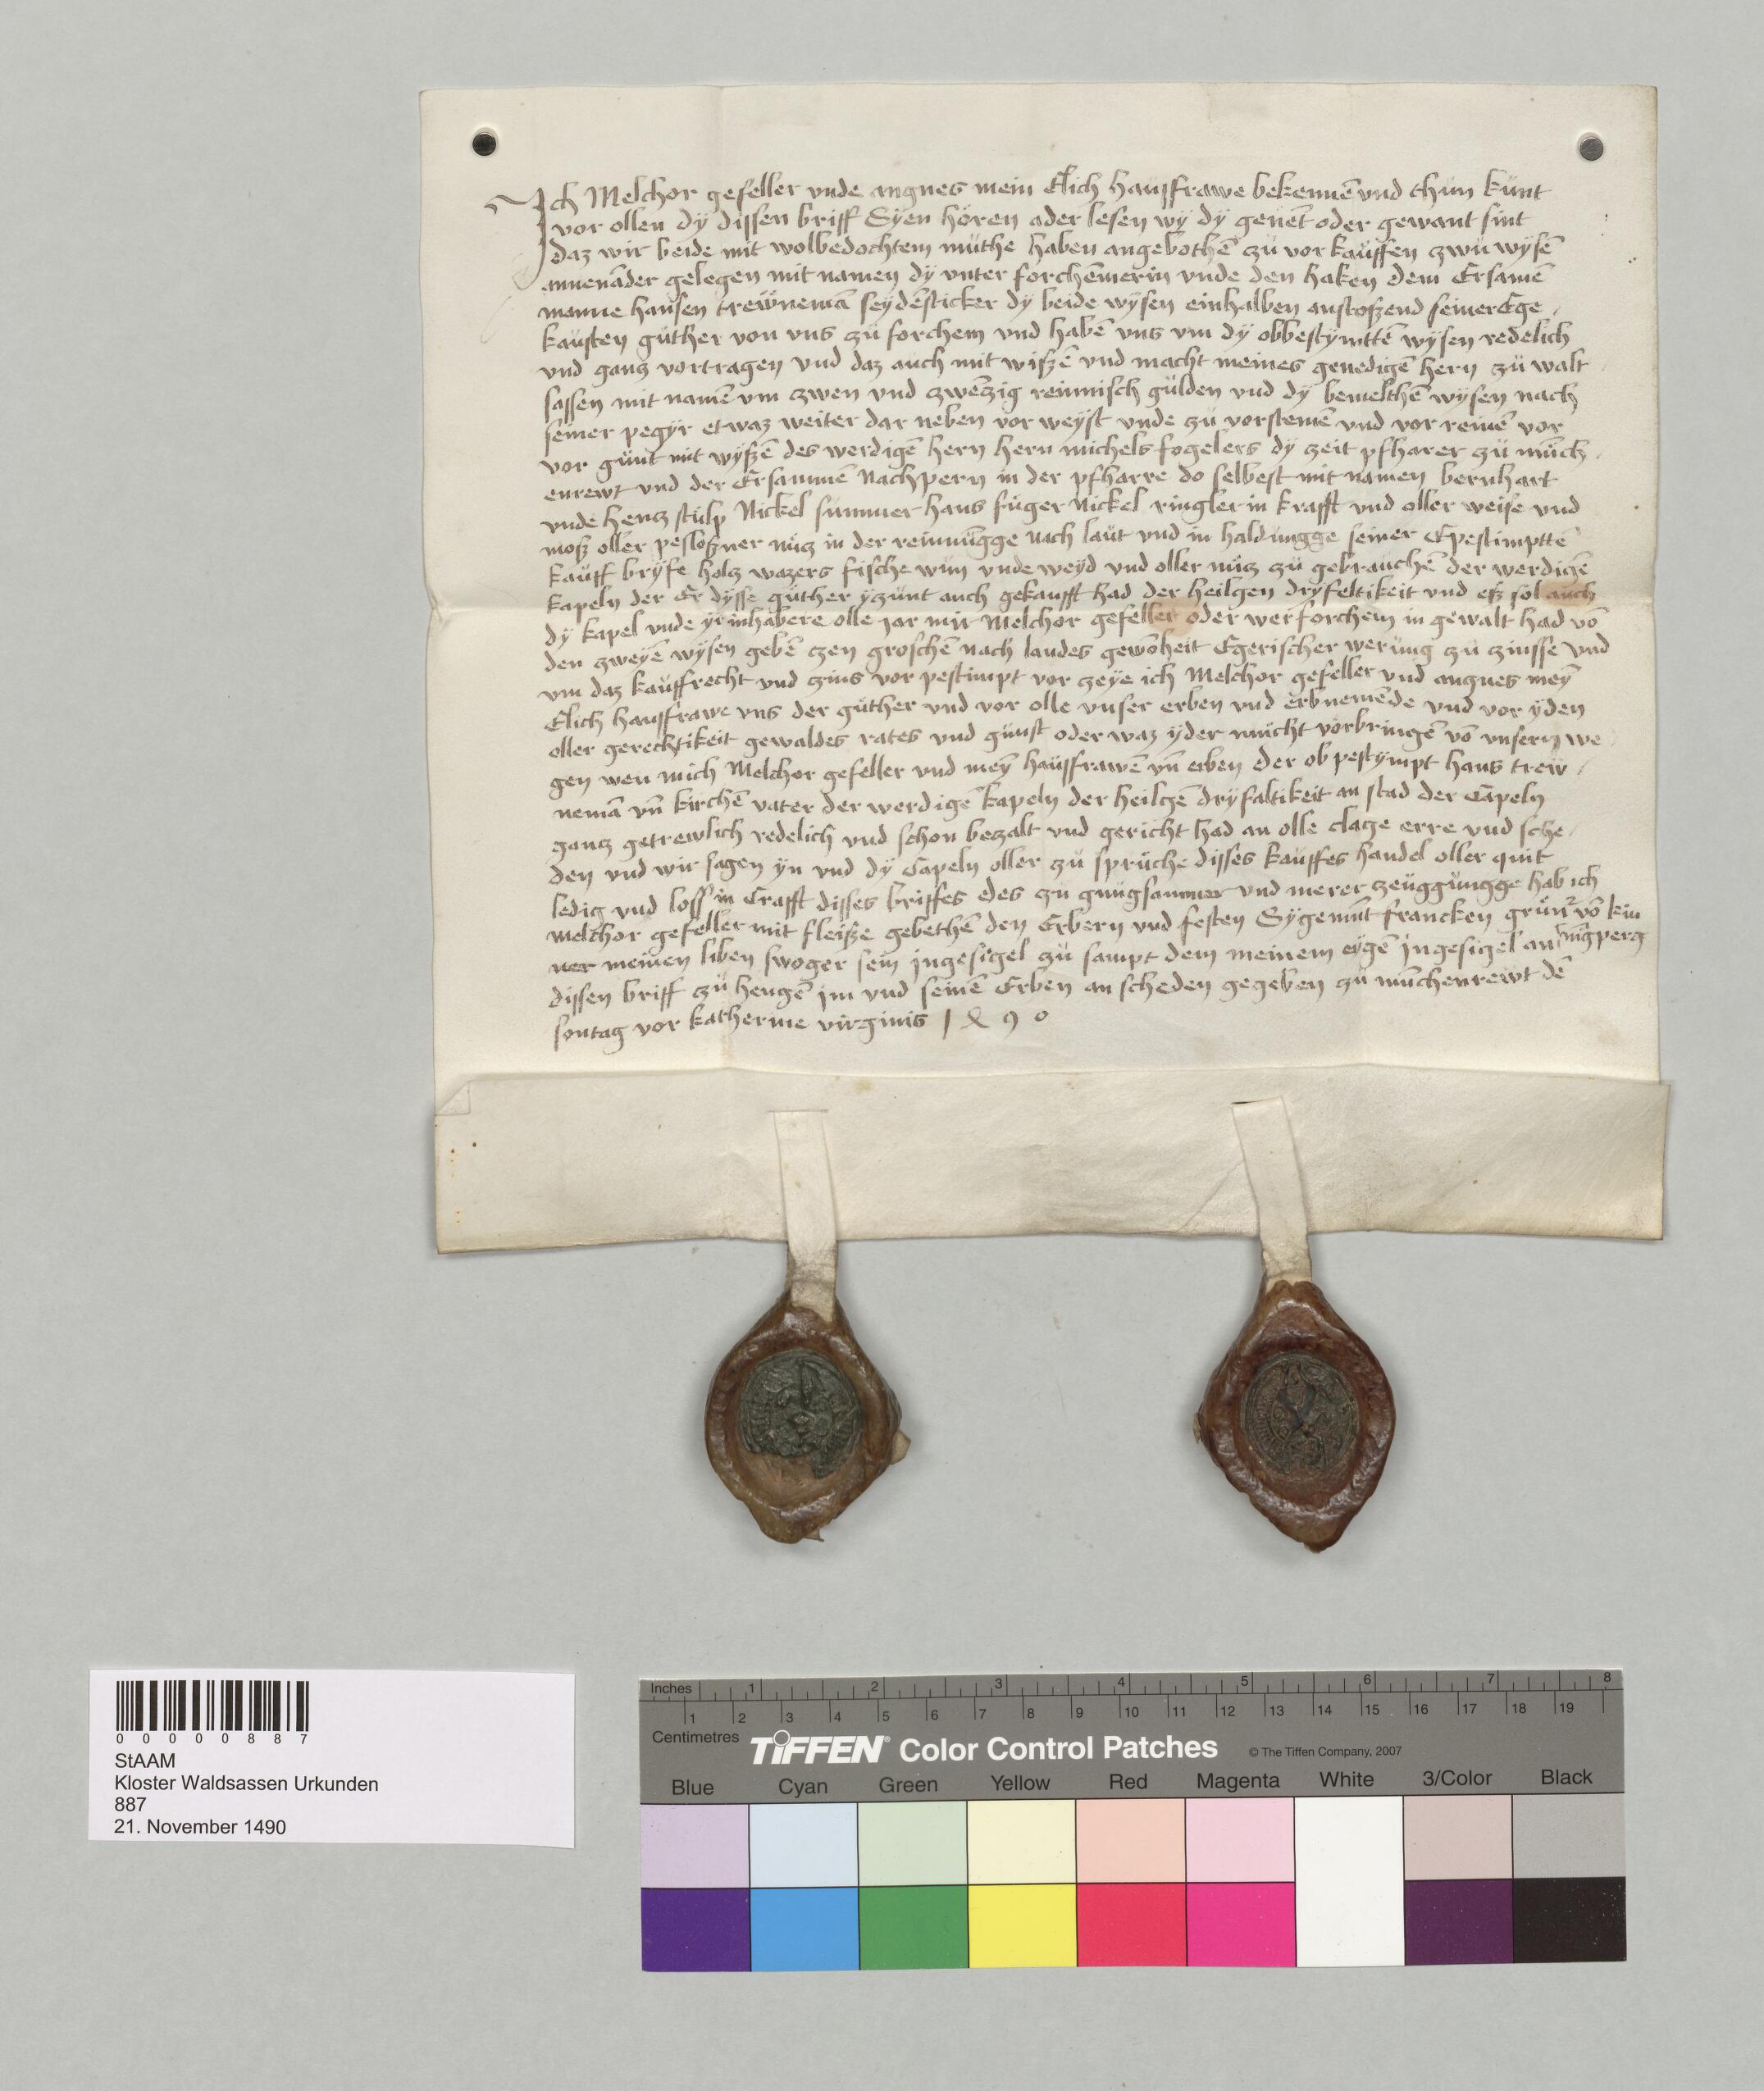 Ich Melchor gefeller vnde angnes mein Elich haußfrawe bekennē vnd thun kunt
vor ollen dÿ dissen briff Syen hören ader lesen wÿ dÿ genēt oder gewant sint
daz wir beide mit wolbedochtem muthe haben angebothē zu vor kauffen zwu wysē
annenāder gelegen mit namen dÿ vnter forchēmerin vnde den haken dem Ersamē
manne hansen trewnemā seydēsticker dÿ beide wysen einhalben anstoßend seiner Ege
kausten guther von vns zu forchem vnd habē vns vm dÿ obbestymttē wysen redelich
vnd gancz vortragen vnd daz auch mit wißē vnd macht meines genedigē hern zu walt
sassen mit namē vm zwen vnd zwēzig reinnisch gulden vnd dÿ bemelthē wysen nach
seiner pegyr etwaz weiter dar neben vor weyst vnde zu vorstenē vnd vor reinē vor
vor gunt mit wyßē des werdigē hern hern michels fogelers dÿ zeit pfharer zu mūch
enrewt vnd der Ersammē Nachpern in der pfharre do selbest mit namen bernhart
vnde hencz stulp Nickel summer hans fuger Nickel ringler in krafft vnd oller weise vnd
moß oller pesloßner nucz in der reinnūgge nach laut vnd in haldungge seiner Epestimptte
kauff bryfe holcz wazers fische wun vnde weyd vnd oller nucz zu gebrauchē der werdigē
kapeln der Er dysse guther yczunt auch gekaufft had der heilgen dryfeltikeit vnd eß sol auch
dÿ kapel vnde yr inhabere olle jar mir Melchor gefeller oder wer forchem in gewalt had vō
den zweyē wysen gebē czen groschē nach landes gewōheit Egerischer werung zu zinsse vnd
vm daz kauffrecht vnd zins vor pestimpt vor zeye ich Melchor gefeller vnd angnes meȳ
Elich haußfrawe vns der guther vnd vor olle vnser erben vnd erbnemēde vnd vor yden
oller gerechtikeit gewaldes rates vnd gunst oder waz yder mücht vorbringē vō vnsern we
gen wen mich Melchor gefeller vnd meȳ haußfrawē vn̄ erben der ob pestympt hans trew
nemā vn̄ kirchē vater der werdigē kapeln der heilgē dryfaltikeit an stad der Capeln
gancz getrewlich redelich vnd schon beczalt vnd gericht had an olle clage erre vnd sche
den vnd wir sagen yn vnd dÿ Capeln oller zu spruche disses kauffes handel oller quit
ledig vnd loss in Crafft disses briffes des zu gnugsammer vnd merer zeuggungge hab ich
Melchor gefeller mit fleiße gebethē den Erbern vnd festen Sygemūt francken grün² vō kin
ner meinen liben swoger sein ingesigel zu sampt dem meinem eygē ingesigel an nigperg
dissen briff zu hengē im vnd seinē Erben an scheden gegeben zu mūchenrewt dē
sontag vor katherine virginis 1490
0000887
StAAM
Kloster Waldsassen Urkunden
887
21. November 1490
Inches 1 2 3 4 5 6 7 8
1 2 3 4 5 6 7 8 9 10 11 12 13 14 15 16 17 18 19
Centimetres
TIFFEN® Color Control Patches © The Tiffen Company, 2007
Blue Cyan Green Yellow Red Magenta White 3/Color Black